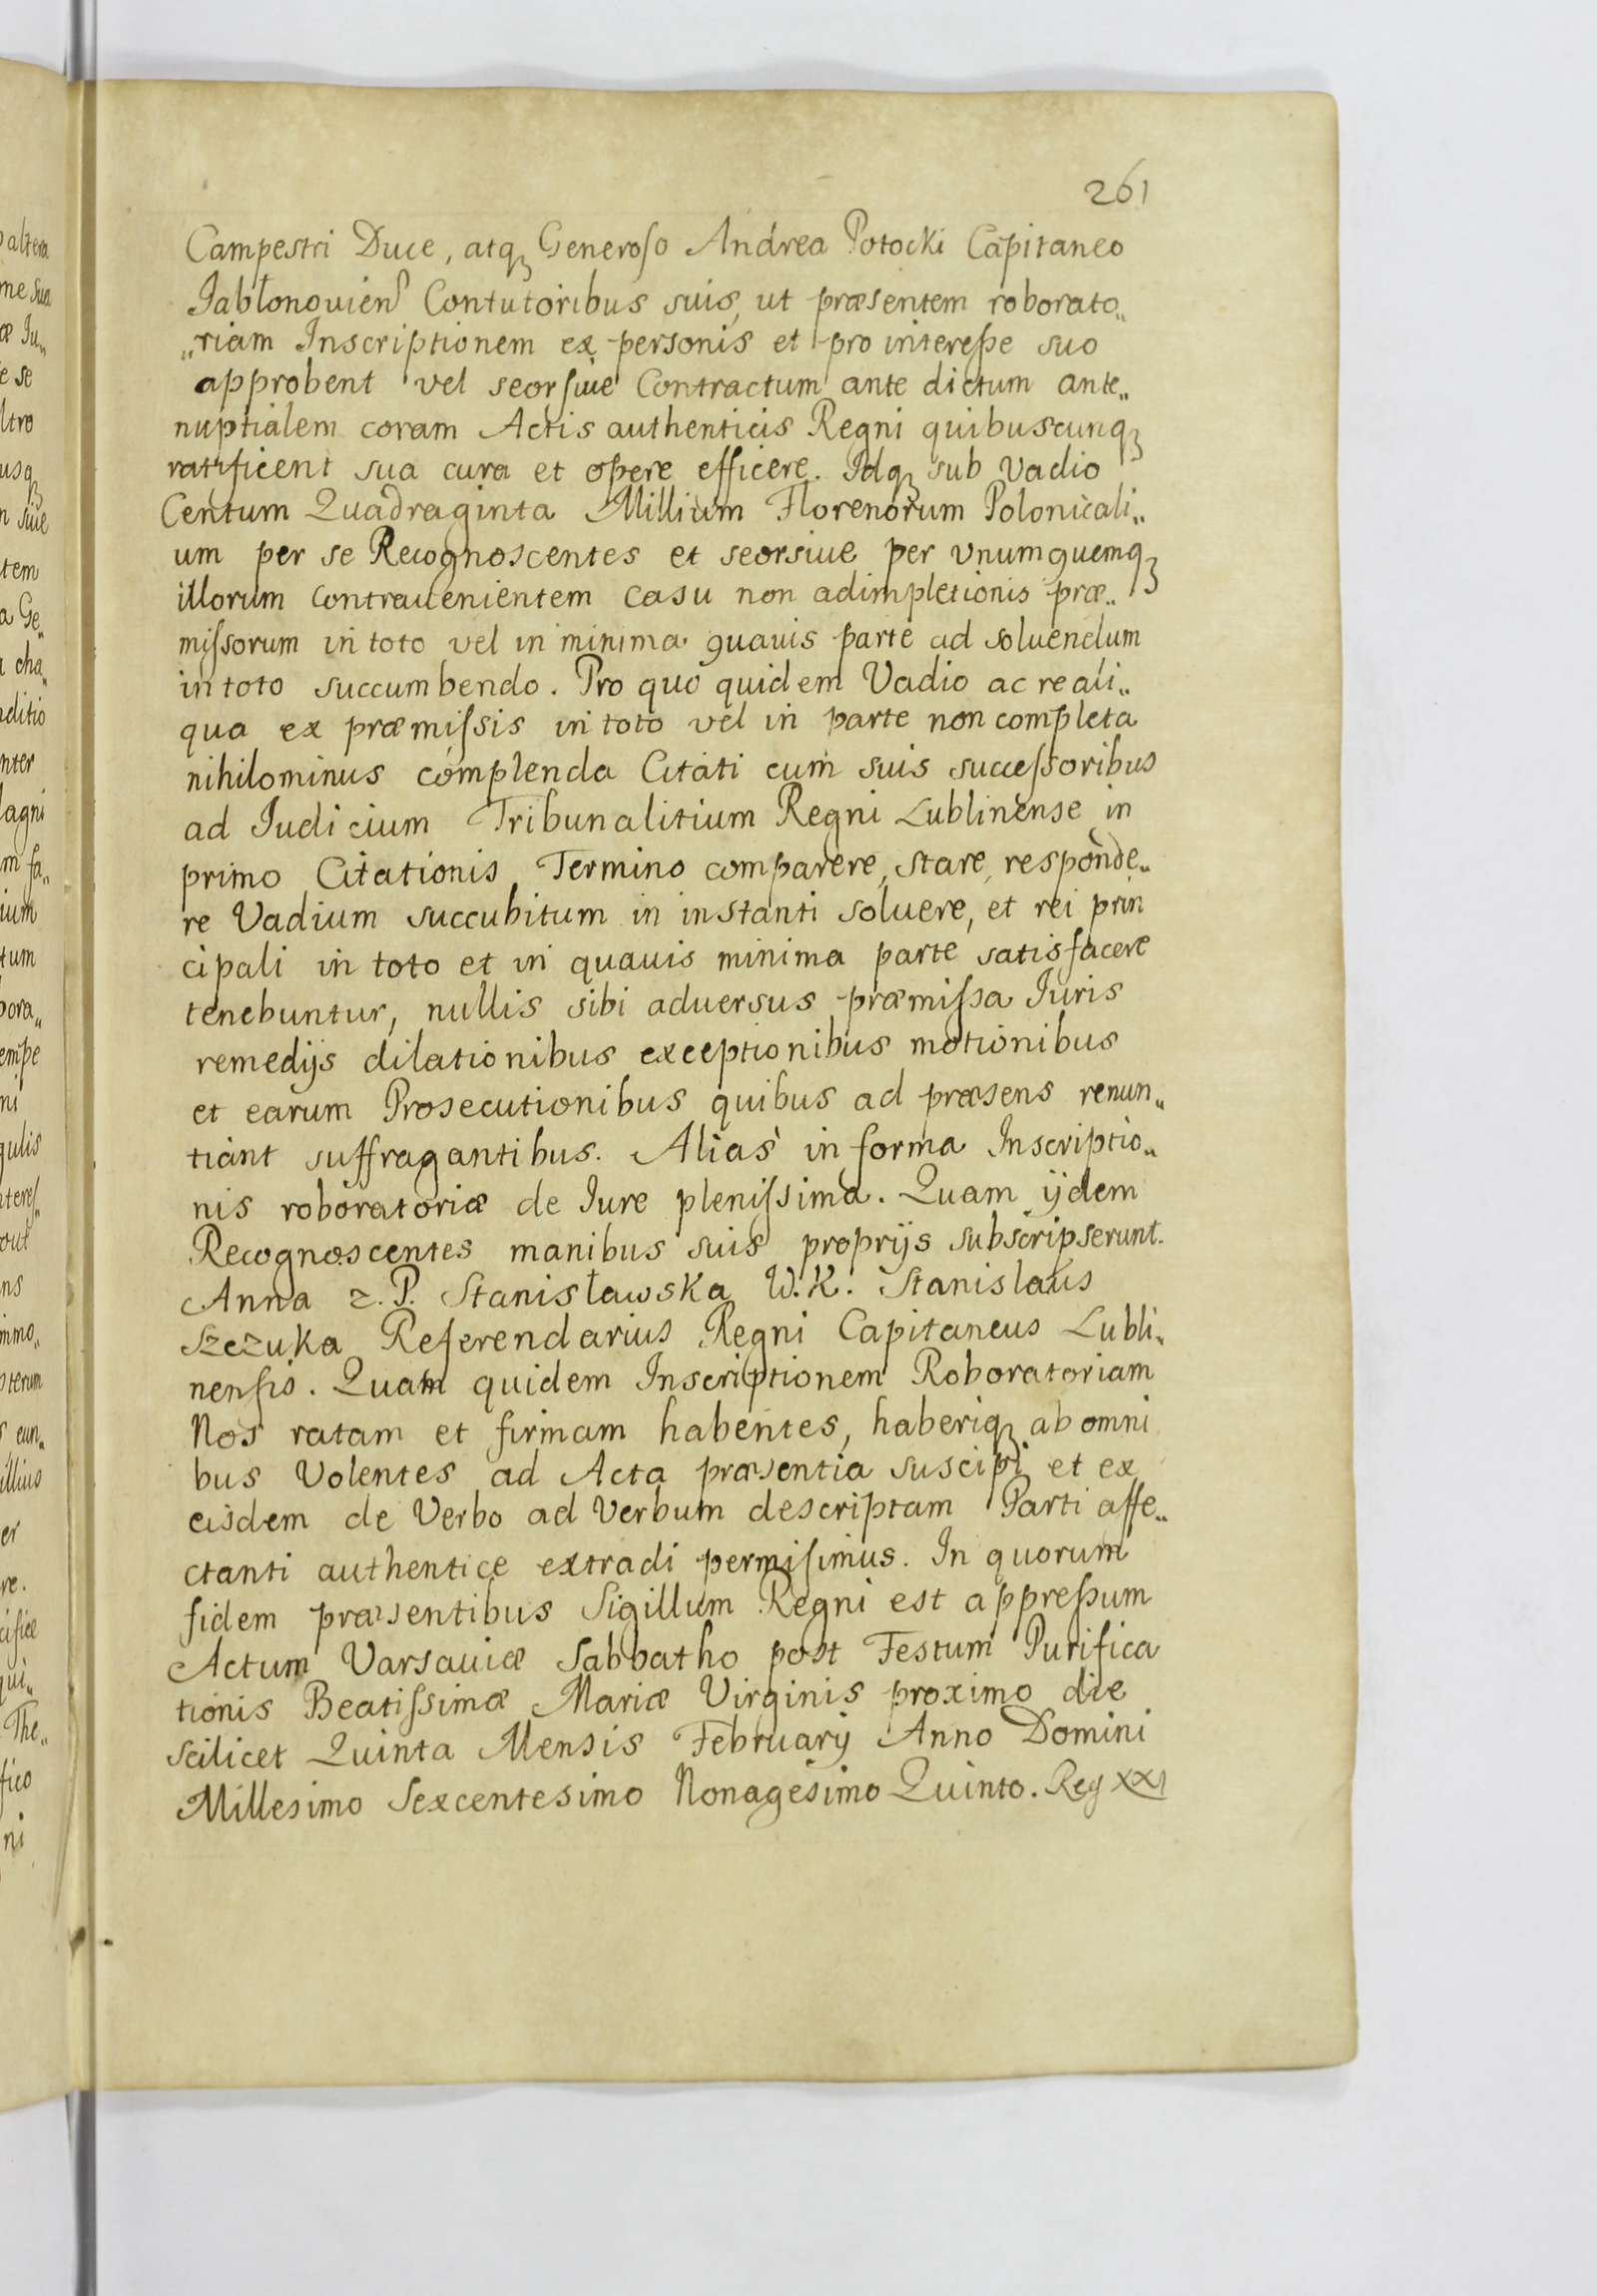 261
Campestri Duce, atqꝫ Generoso Andrea Potocki Capitaneo
Jabłonouien Contutoribus suis, ut præsentem roborato„
„riam Inscriptionem ex personis et pro interesse suo
approbent vel seorsiue Contractum ante dictum ante„
nuptialem coram Actis authenticis Regni quibuscunqꝫ
ratificent sua cura et opere efficere. Idqꝫ sub Vadio
Centum Quadraginta Millium Florenorum Polonicali„
um per se Recognoscentes et seorsiue per vnumquemqꝫ
illorum contrauenientem casu non adimpletionis præ„
missorum in toto vel in minima quauis parte ad soluendum
in toto succumbendo. Pro quo quidem Vadio ac re ali„
qua ex præmissis in toto vel in parte non completa
nihilominus complenda Citati cum suis successoribus
ad Iudicium Tribunalitium Regni Lublinense in
primo Citationis Termino comparere, stare, responde„
re Vadium succubitum in instanti soluere, et rei prin
cipali in toto et in quauis minima parte satisfacere
tenebuntur, nullis sibi aduersus præmissa Iuris
remedijs dilationibus exceptionibus motionibus
et earum Prosecutionibus quibus ad præsens renun„
tiant suffragantibus. Alias in forma Inscriptio„
nis roboratoriæ de Iure plenissima. Quam ijdem
Recognoscentes manibus suis proprijs subscripserunt.
Anna z. P. Stanisławska W. K. Stanislaus
Szczuka Referendarius Regni Capitaneus Lubli„
nensis. Quam quidem Inscriptionem Roboratoriam
Nos ratam et firmam habentes, haberiqꝫ ab omni
bus Volentes ad Acta præsentia suscipi et ex
eisdem de Verbo ad Verbum descriptam Parti affe„
ctanti authentice extradi permisimus. In quorum
fidem præsentibus Sigillum Regni est appressum
Actum Varsauiæ Sabbatho post Festum Purifica
tionis Beatissimæ Mariæ Virginis proximo die
scilicet Quinta Mensis February Anno Domini
Millesimo Sexcentesimo Nonagesimo Quinto. Reg XXI